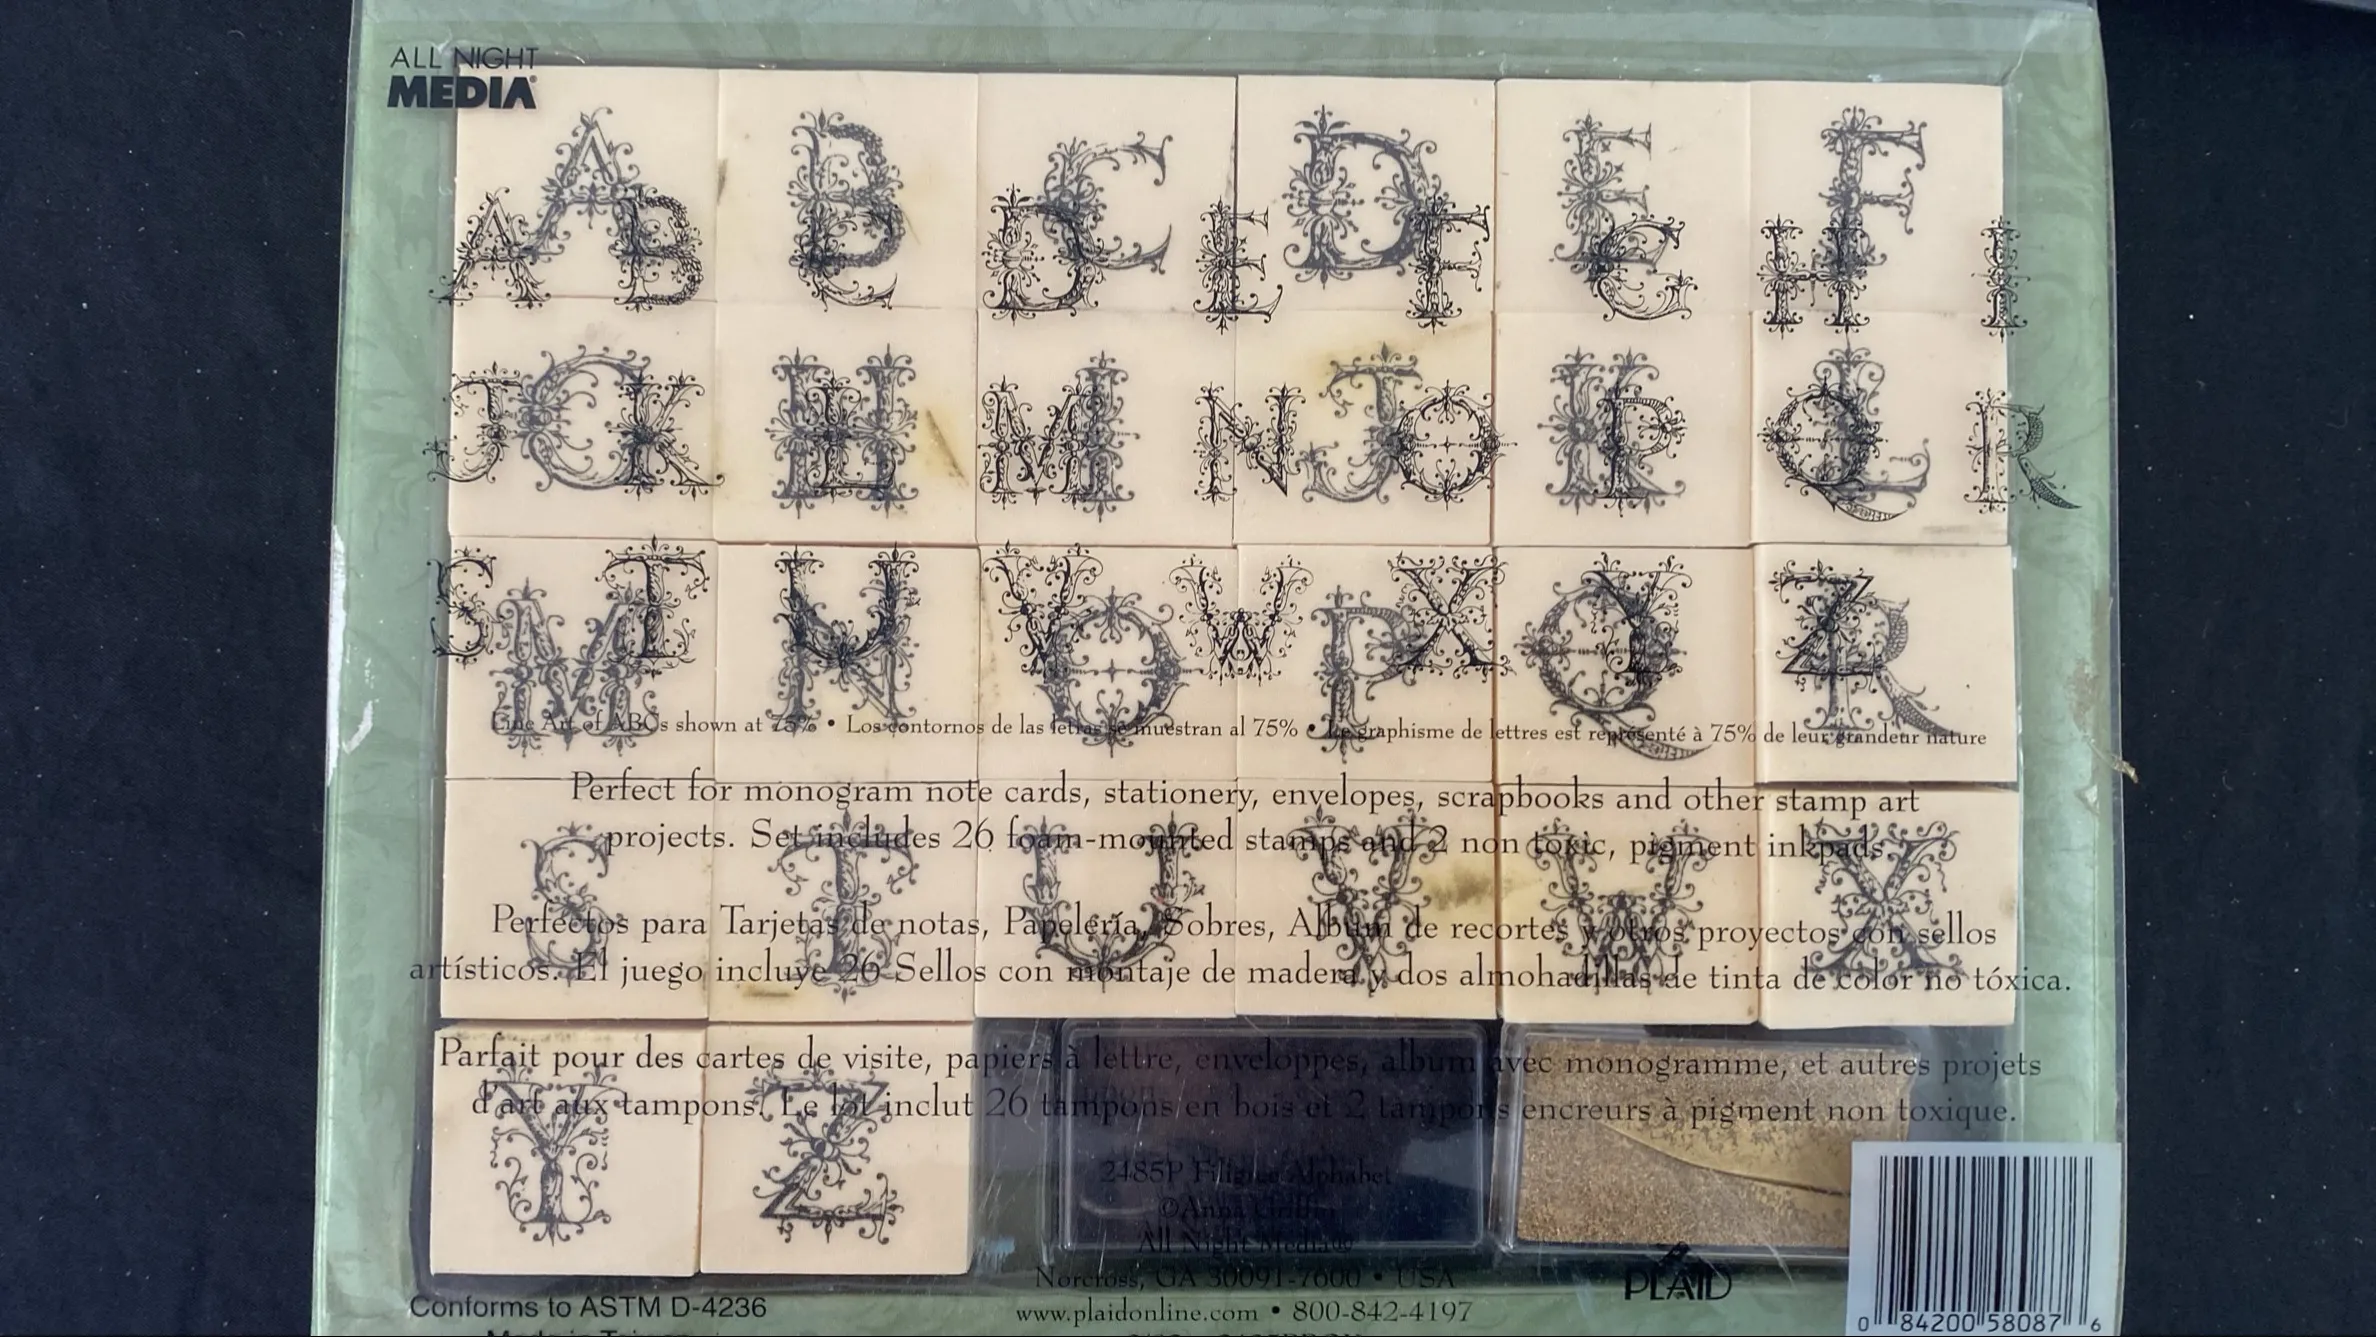 ALL NIGHT
MEDIA
A B C D E F
A B C D E F G H I
G H I J K L
J K L M N O P Q R
S T U V W X Y Z
M N O P Q R
Fine Art of ABCs shown at 75% • Los contornos de las letras se muestran al 75% • Le graphisme de lettres est représenté à 75% de leur grandeur nature
Perfect for monogram note cards, stationery, envelopes, scrapbooks and other stamp art
projects. Set includes 26 foam-mounted stamps and 2 non toxic, pigment inkpads.
S T U V W X
Perfectos para Tarjetas de notas, Papelería, Sobres, Album de recortes y otros proyectos con sellos
artísticos. El juego incluye 26 Sellos con montaje de madera y dos almohadillas de tinta de color no tóxica.
Parfait pour des cartes de visite, papiers à lettre, enveloppes, album avec monogramme, et autres projets
d'art aux tampons. Le lot inclut 26 tampons en bois et 2 tampons encreurs à pigment non toxique.
Y Z
2485P Filigree Alphabet
©Anna Griffin
All Night Media®
Norcross, GA 30091-7600 • USA
www.plaidonline.com • 800-842-4197
PLAID
Conforms to ASTM D-4236
Made in Taiwan
0 84200 58087 6